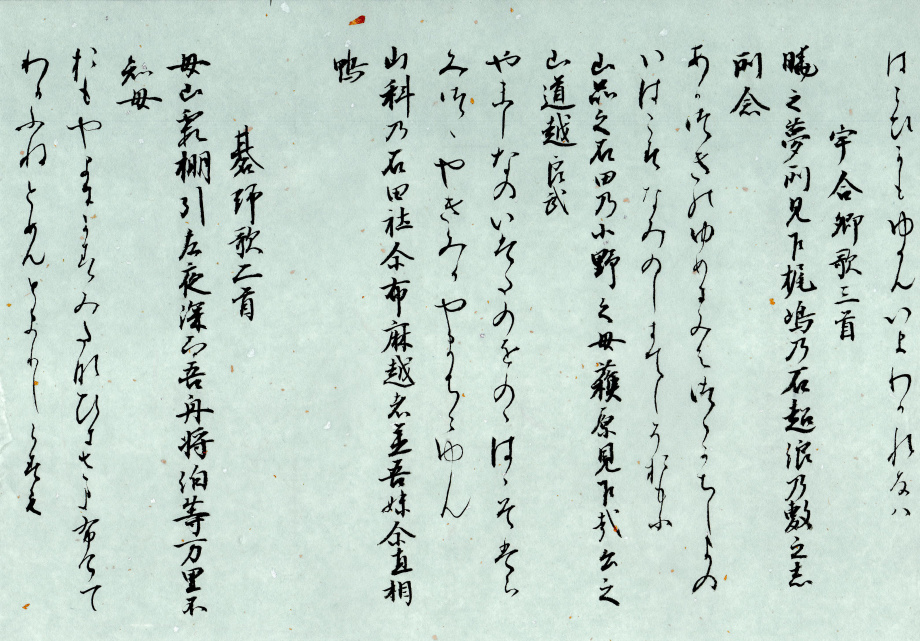 はこひかもゆかんいまわかれなは
宇合卿歌三首
暁之夢所見乍梶嶋乃石超浪乃敷之志
所念
あかつきのゆめにみえつゝかちしまの
いはこすなみのしきてしそおもふ
山品之石田乃小野之母蘇原見乍哉公之
山道越良武
やましなのいはたのをのゝはゝそはら
みつゝやきみかやまちこゆらん
山科乃石田社尓布麻越者蓋吾妹尓直相
鴨
碁師歌二首
母山霞棚引左夜深而吾舟将泊等万里不
知母
おもやまにかすみたなひきさよふけて
わかふねとめんとまりしらすも